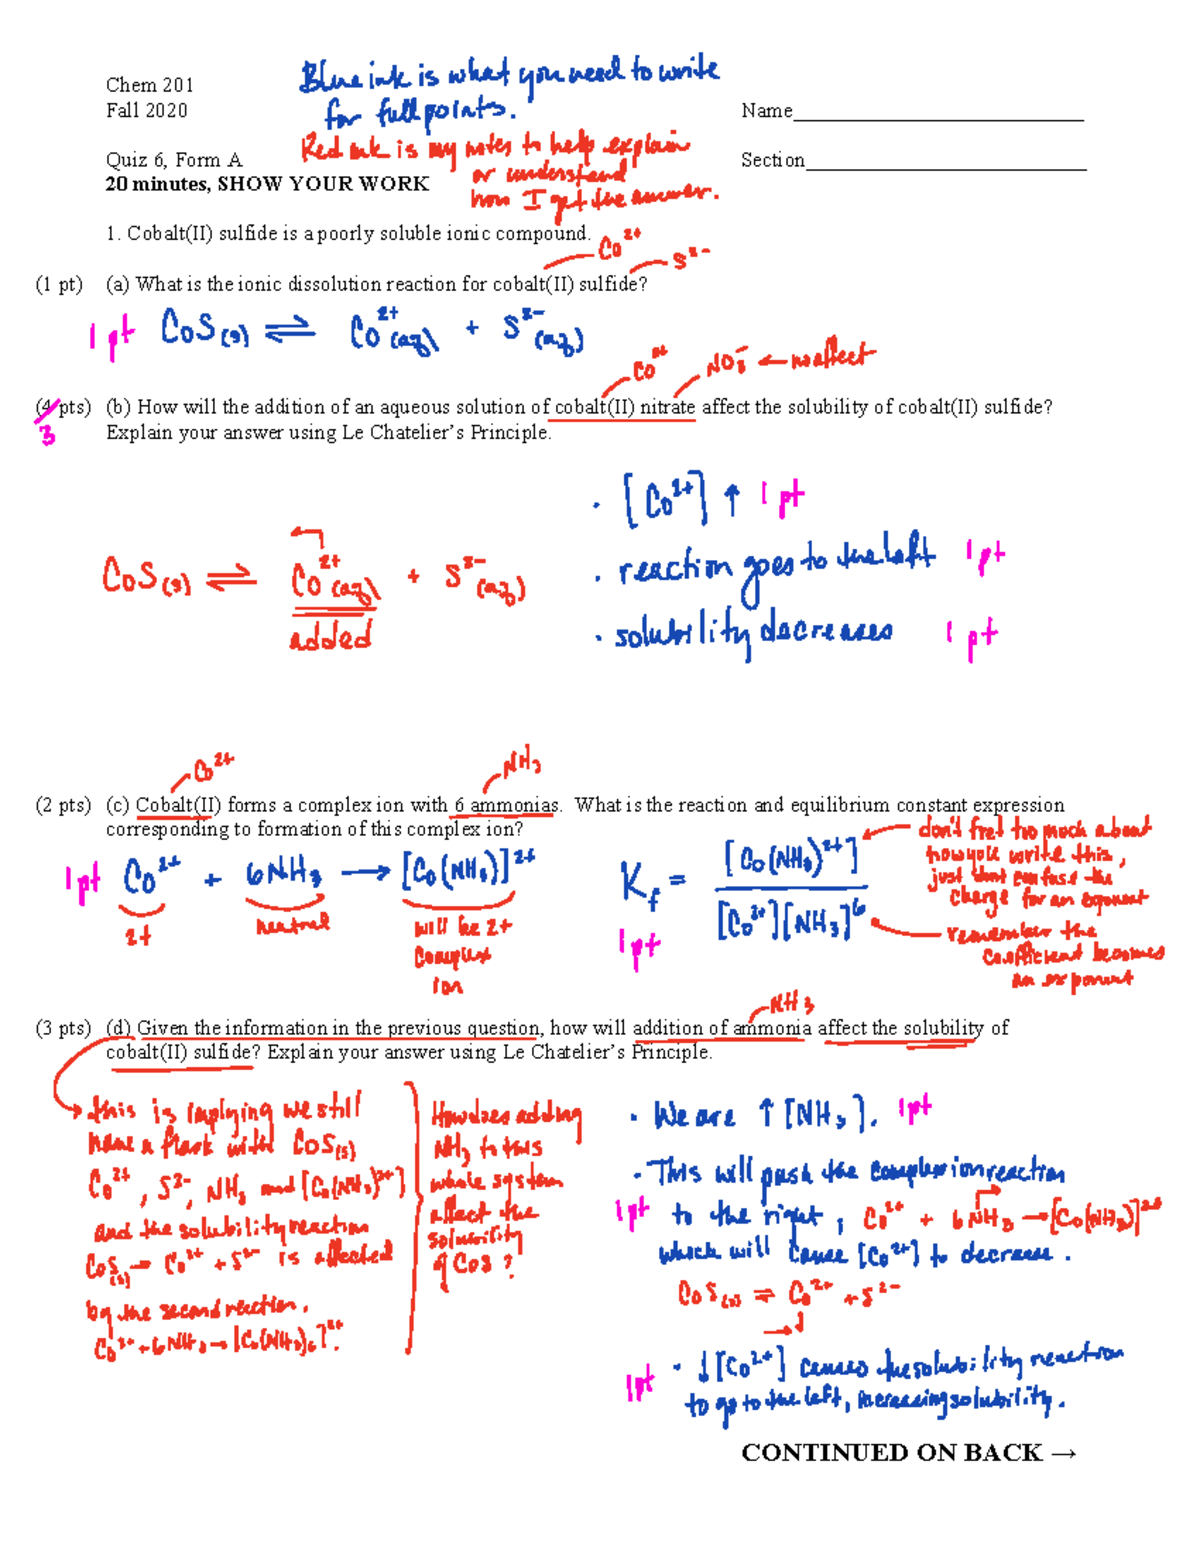 Chem 201
Fall 2020
Blue ink is what you need to write
for full points.
Name
Red ink is my notes to help explain
or understand
how I get the answer.
Quiz 6, Form A
20 minutes, SHOW YOUR WORK
Section
1. Cobalt(II) sulfide is a poorly soluble ionic compound.
Co²⁺
S²⁻
(1 pt) (a) What is the ionic dissolution reaction for cobalt(II) sulfide?
1 pt CoS(s) ⇌ Co²⁺(aq) + S²⁻(aq)
Co²⁺ NO₃⁻ ← no affect
(4 pts) (b) How will the addition of an aqueous solution of cobalt(II) nitrate affect the solubility of cobalt(II) sulfide?
3
Explain your answer using Le Chatelier's Principle.
· [Co²⁺] ↑ 1 pt
CoS(s) ⇌ Co²⁺(aq) + S²⁻(aq)
added
· reaction goes to the left 1 pt
· solubility decreases 1 pt
Co²⁺
NH₃
(2 pts) (c) Cobalt(II) forms a complex ion with 6 ammonias. What is the reaction and equilibrium constant expression
corresponding to formation of this complex ion?
1 pt Co²⁺ + 6NH₃ → [Co(NH₃)]²⁺
2+
neutral
will be 2+
complex
ion
K_f = [Co(NH₃)²⁺] / [Co²⁺][NH₃]⁶
1 pt
don't fret too much about
how you write this,
just don't confuse the
charge for an exponent
remember the
coefficient becomes
an exponent
NH₃
(3 pts) (d) Given the information in the previous question, how will addition of ammonia affect the solubility of
cobalt(II) sulfide? Explain your answer using Le Chatelier's Principle.
this is implying we still
have a flask with CoS(s)
Co²⁺, S²⁻, NH₃ and [Co(NH₃)²⁺]
and the solubility reaction
CoS(s) → Co²⁺ + S²⁻ is affected
by the second reaction.
Co²⁺ + 6NH₃ → [Co(NH₃)₆]²⁺.
How does adding
NH₃ to this
whole system
affect the
solubility
of CoS?
· We are ↑ [NH₃]. 1 pt
· This will push the complex ion reaction
1 pt to the right, Co²⁺ + 6NH₃ → [Co(NH₃)]²⁺
which will cause [Co²⁺] to decrease.
CoS(s) ⇌ Co²⁺ + S²⁻
→ ↓
1 pt · ↓ [Co²⁺] causes the solubility reaction
to go to the left, increasing solubility.
CONTINUED ON BACK →